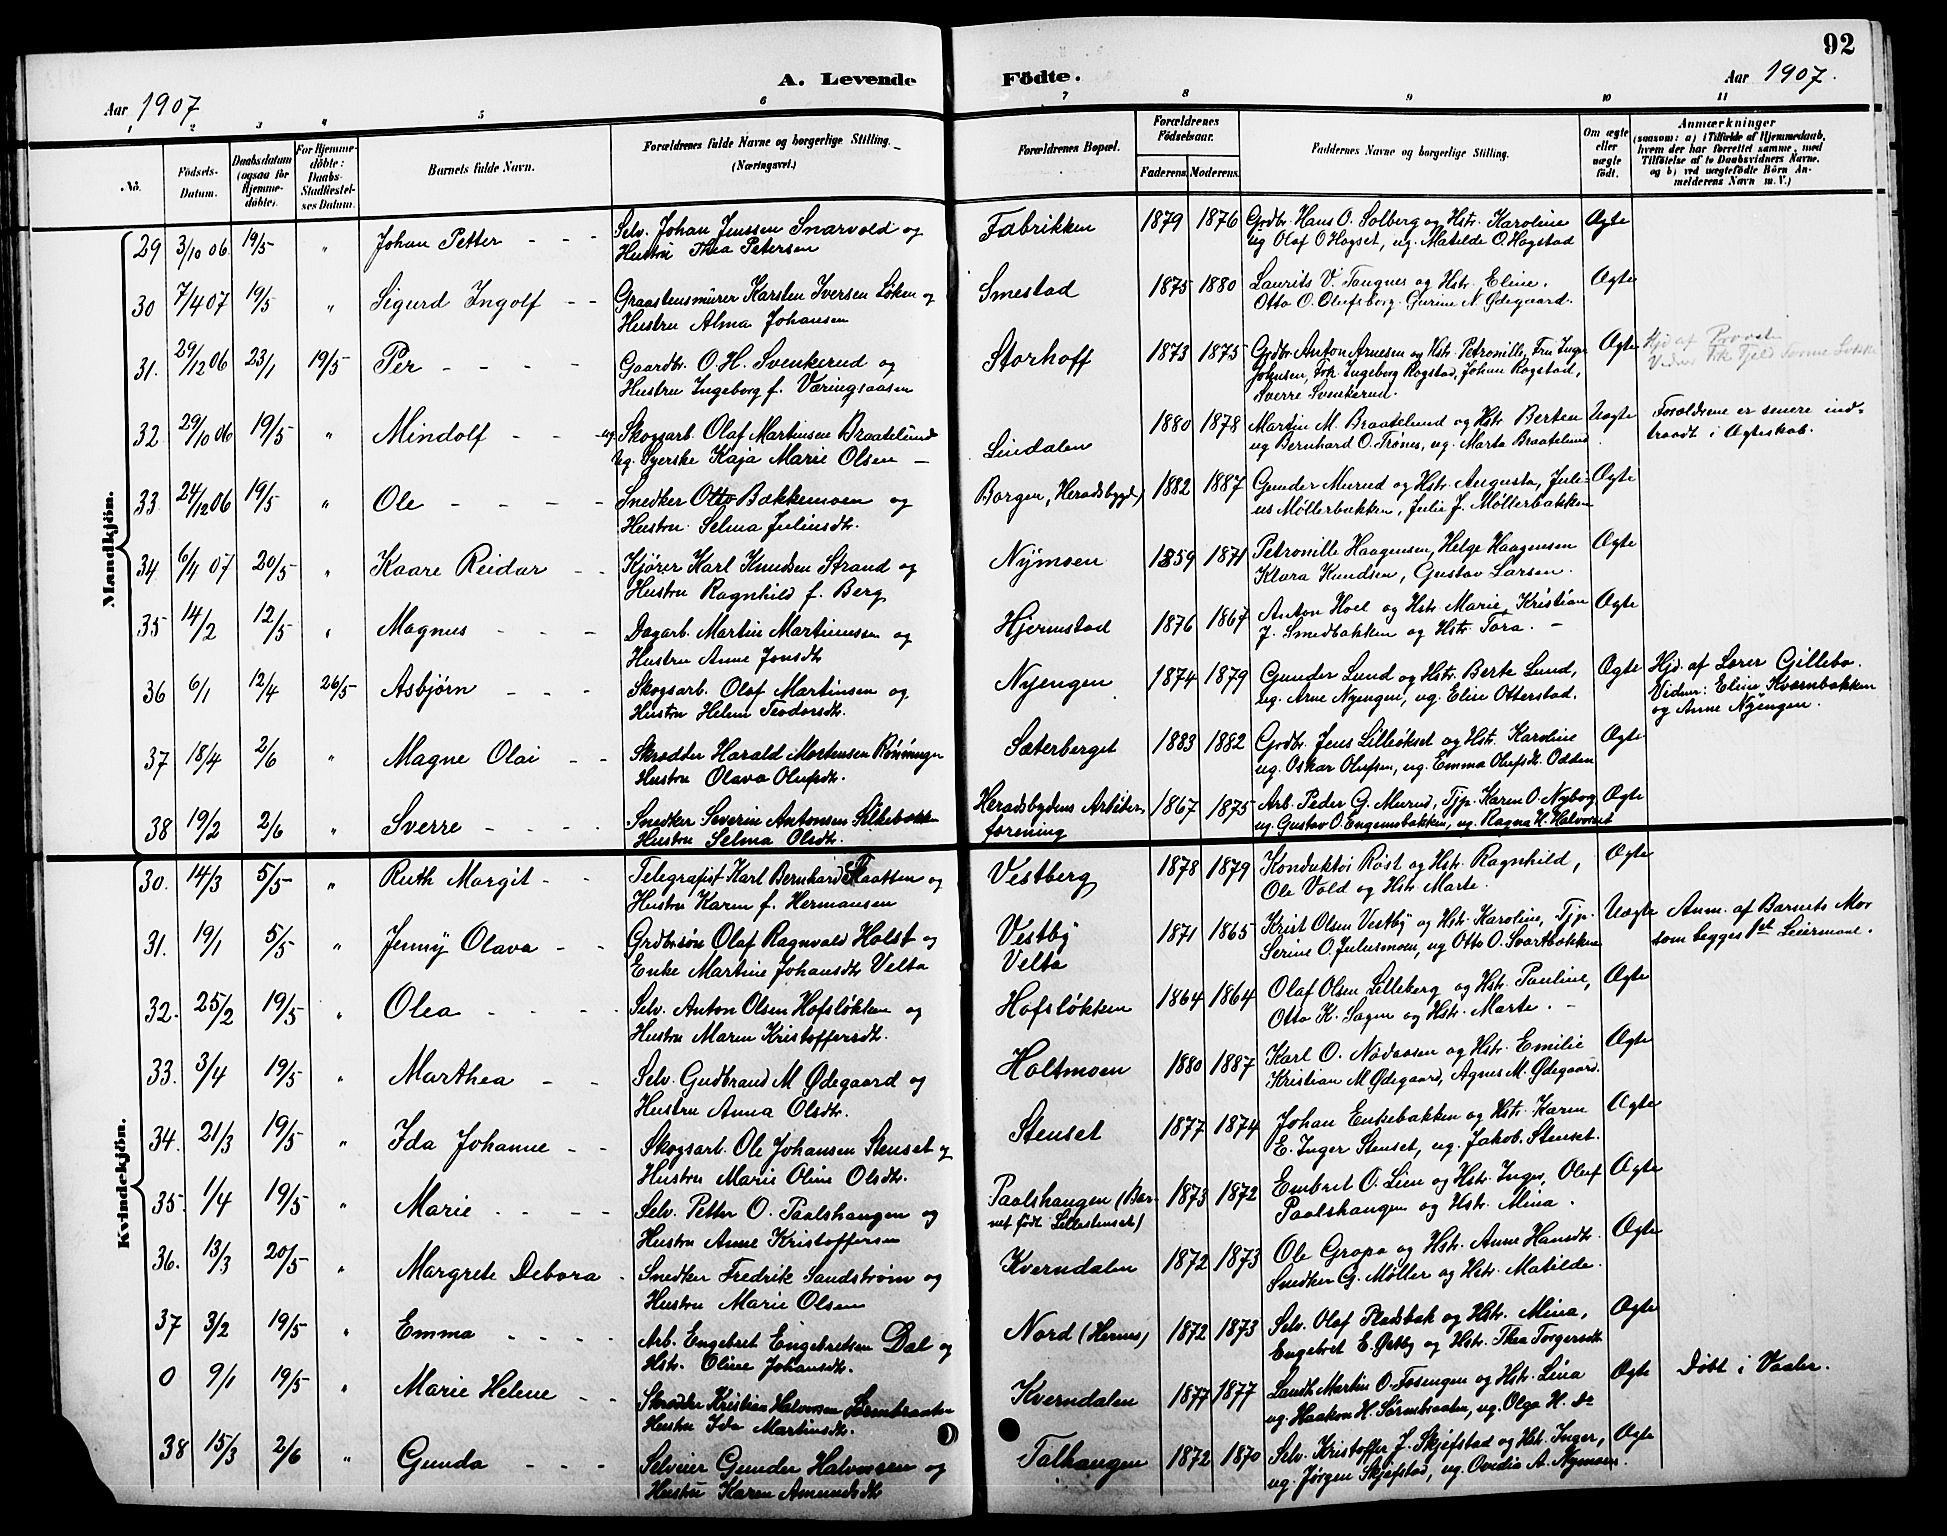 92
A. Levende Födte.
Aar 1907
Aar 1907.
1 2 3 4 5 6 7 8 9 10 11
No.
Födsels-Datum.
Daabsdatum (ogsaa for Hjemme-döbte).
For Hjemme-döbte: Daabs-Stadfæstel-ses Datum.
Barnets fulde Navn.
Forældrenes fulde Navne og borgerlige Stilling. (Næringsvei.)
Forældrenes Bopæl.
Forældrenes Födselsaar.
Faderens. Moderens.
Faddernes Navne og borgerlige Stilling.
Om ægte eller uægte födt.
Anmærkninger
(saasom: a) i Tilfælde af Hjemmedaab, hvem der har forrettet samme, med Tilföielse af to Daabsvidners Navne, og b) ved uægtefödte Börn An-melderens Navn m. V.)
Mandkjön.
29 3/10 06 19/5 " Johan Petter - - -
Selv. Johan Jenssen Snarvold og
Hustru Thea Petersen
Fabrikken 1879 1876
Grdbr. Hans O. Solberg og Hstr. Karoline
ug Olaf O Hogset, ug. Matilde O. Hogstad
Ægte
30 7/4 07 19/5 " Sigurd Ingolf - -
Graastensmurer Karsten Iversen Løken og
Hustru Alma Johansen
Smestad 1875 1880
Laurits V. Tangnes og Hstr. Eline.
Otto O. Olufsborg. Gurine N. Ødegaard.
Ægte
31. 29/12 06 23/1 19/5 Per - - - -
Gaardbr. O. H. Svenkerud og
Hustru Ingeborg f. Væringsaasen
Storhoff 1873 1875
Grdbr. Anton Arnesen og Hstr. Petronille, Fru Inga
Johnsen, Frk. Ingeborg Rogstad, Johan Rogstad,
Sverre Svenkerud.
Ægte
Hjd af Provst
32 29/10 06 19/5 " Mindolf - - -
ug. Skogsarb. Olaf Martinsen Braatelund
ug. Syerske Kaja Marie Olsen -
Lindalen 1880 1878
Martin M. Braatelund og Hstr. Berten
ug Bernhard O. Trønes, ug. Marta Braatelund
Uægte
Forældrene er senere ind-
traadt i Ægteskab.
33 24/12 06 19/5 " Ole - - - -
Snedker Otto Bakkemoen og
Hustru Selma Juliusdtr.
Borgen, (Heradsbygd) 1882 1887
Gunder Murud og Hstr. Augusta, Juli-
us Møllerbakken, Julie J. Møllerbakken
Ægte
34 6/4 07 20/5 " Kaare Reidar - -
Kjører Karl Knudsen Strand og
Hustru Ragnhild f. Berg
Nymoen 1859 1871
Petronille Haagensen, Helge Haagensen
Klara Knudsen, Gustav Larsen.
Ægte
35 14/2 12/5 " Magnus - - -
Dagarb. Martin Martinusen og
Hustru Anne Jonsdtr
Hjermstad 1876 1867
Anton Hoel og Hstr. Marie, Kristian
J. Smedbakken og Hstr. Tora. -
Ægte
36 6/1 12/4 26/5 Asbjørn - - -
Skogsarb. Olaf Martinsen og
Hustru Helene Teodorsdtr.
Nyengen 1874 1879
Gunder Lund og Hstr. Berte Lund,
ug. Arne Nyengen, ug. Elise Otterstad.
Ægte
Hjd. af Lærer Gillebo.
Vidner: Eline Kværnbakken
og Anne Nyengen.
37 18/4 2/6 " Magne Olai - -
Skrædder Harald Mortensen Rønningen
Hustru Olava Olufsdtr.
Sæterberget 1883 1882
Grdbr. Jens Lilleøkset og Hstr. Karoline
ug. Oskar Olufsen, ug. Emma Olufsdtr. Odden
Ægte
38 19/2 2/6 " Sverre - - - -
Snedker Severin Antonsen Silkebækken
Hustru Selma Olsdtr.
Heradsbygdens Arbeider-
forening 1867 1875
Arb. Peder G. Murud, Tjp. Karen O. Nyborg
ug. Gustav O. Engemsbakken, ug. Ragna H. Halvorset
Ægte
Kvindekjön.
30. 14/3 5/5 " Ruth Margit - -
Telegrafist Karl Bernhard Flaatten og
Hustru Karen f. Hermansen
Vestberg 1878 1879
Konduktør Røst og Hstr. Ragnhild,
Ole Vold og Hstr. Marte.
Ægte
31. 19/1 5/5 " Jenny Olava - -
Grdbrsøn Olaf Ragnvald Holst og
Enke Martine Johansdtr Velta
Vestby
Velta 1871 1865
Krist Olsen Vestby og Hstr. Karoline, Tjp.
Serine O. Julusmoen, ug Otto O. Svartbækken
Uægte
Anm. af Barnets Mor
som begges 1st Leiermaal.
32. 25/2 19/5 " Olea - - - -
Selv. Anton Olsen Hofsløkken og
Hustru Maren Kristoffersdtr.
Hofsløkken 1864 1864
Olaf Olsen Lilleberg og Hstr. Pauline,
Otto K. Sagen og Hstr. Marte. -
Ægte
33. 3/4 19/5 " Marthea - -
Selv. Gudbrand M. Ødegaard og
Hustru Anna Olsdtr.
Holtmoen 1880 1887
Karl O. Nødaasen og Hstr. Emilie
Kristian M. Ødegaard, Agnes M. Ødegaard.
Ægte
34. 21/3 19/5 " Ida Johanne - -
Skogsarb. Ole Johansen Stenset og
Hustru Marie Oline Olsdtr.
Stenset 1877 1874
Johan Enkebakken og Hstr. Karen
E. Inger Stenset, ug. Jakob. Stenset.
Ægte
35. 1/4 19/5 " Marie - - - -
Selv. Petter O. Paalshaugen og
Hustru Anne Kristoffersen
Paalshaugen (Bar-
net født Lillestenset) 1873 1872
Embret O. Lien og Hstr. Inger, Oluf
Paalshaugen og Hstr. Mina.
Ægte
36. 13/3 20/5 " Margrete Debora -
Snedker Fredrik Sandstrøm og
Hustru Marie Olsen
Kverndalen 1872 1873
Ole Gropa og Hstr. Anne Hansdtr.
Snedker G. Møller og Hstr. Matilde.
Ægte
37 3/2 19/5 " Emma - - - -
Arb. Engebret Engebretsen Dal og
Hstr. Oline Johansdtr.
Nord (Hernes) 1872 1873
Selv. Olaf Pladsbak og Hstr. Mina,
Engebret E. Østby og Hstr. Thea Torgersdtr
Ægte
0 9/1 19/5 " Marie Helene - -
Skrædder Kristian Halvorsen Sørmbraaten
Hustru Ida Martinsdtr.
Kverndalen 1877 1877
Landh. Martin O. Fosengen og Hstr. Lina
ug. Haakon H. Sørmbraaten, ug. Olga H. Do
Ægte
Døbt i Vaaler.
38 15/3 2/6 " Gunda - - -
Selveier Gunder Halvorsen og
Hustru Karen Amundsdtr
Talhaugen 1872 1870
Selv. Kristoffer J. Skjefstad og Hstr. Inger,
ug. Jørgen Skjefstad, ug. Ovidia A. Nymoen.
Ægte